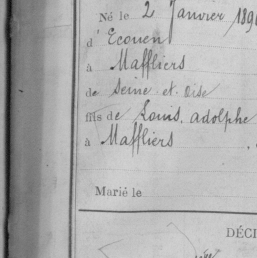 Né le 2 Janvier 189
d' Ecouen
à Maffliers
de Seine et Oise
fils de Louis, adolphe
à Maffliers
Marié le
DÉCI